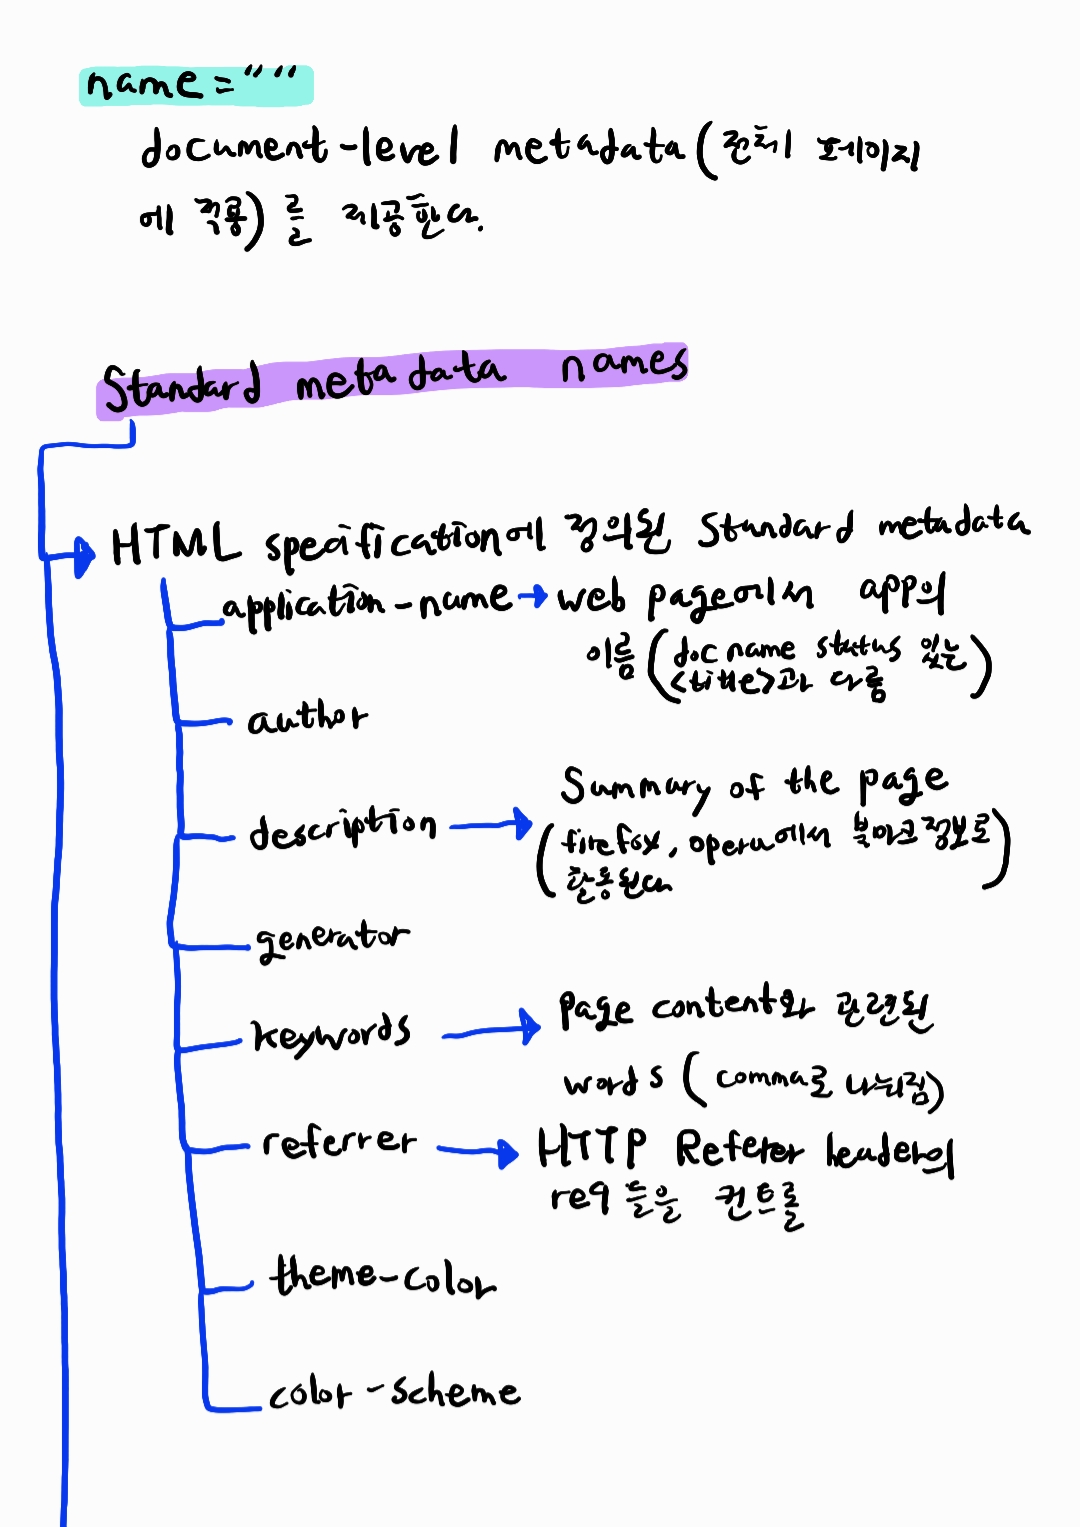 name=""
document-level metadata(전체 페이지
에 적용)를 제공한다.
Standard metadata names
HTML specification에 정의된 Standard metadata
application-name → web page에서 app의
이름 (doc name status 있는
<title>과 다름)
author
description → Summary of the page
(firefox, opera에서 북마크 정보로
활용된다)
generator
keywords → page content와 관련된
words (comma로 나눠짐)
referrer → HTTP Referer header의
req들을 컨트롤
theme-color
color-scheme